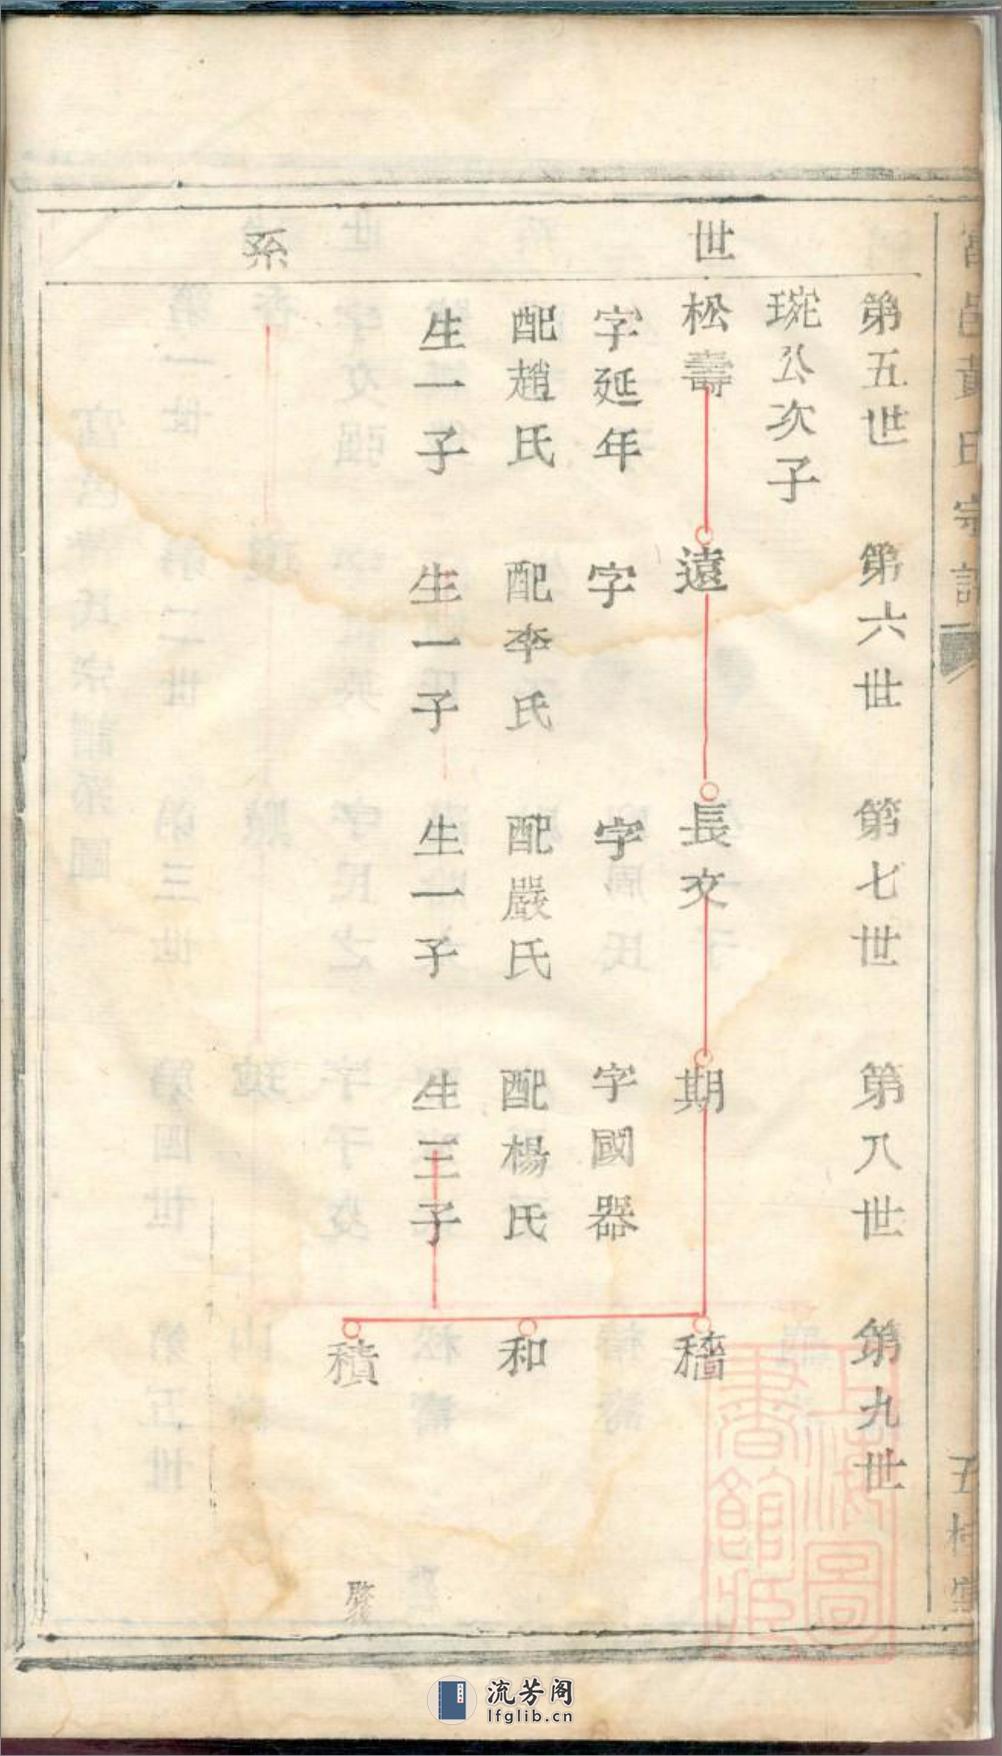 富邑黃氏宗譜
五桂堂
世系
第五世
第六世
第七世
第八世
第九世
琬公次子
松壽
遠
長交
期
穡
字延年
字
字
字國器
配趙氏
配李氏
配嚴氏
配楊氏
和
生一子
生一子
生一子
生三子
積
上海圖
書館藏
流芳阁
lfglib.cn